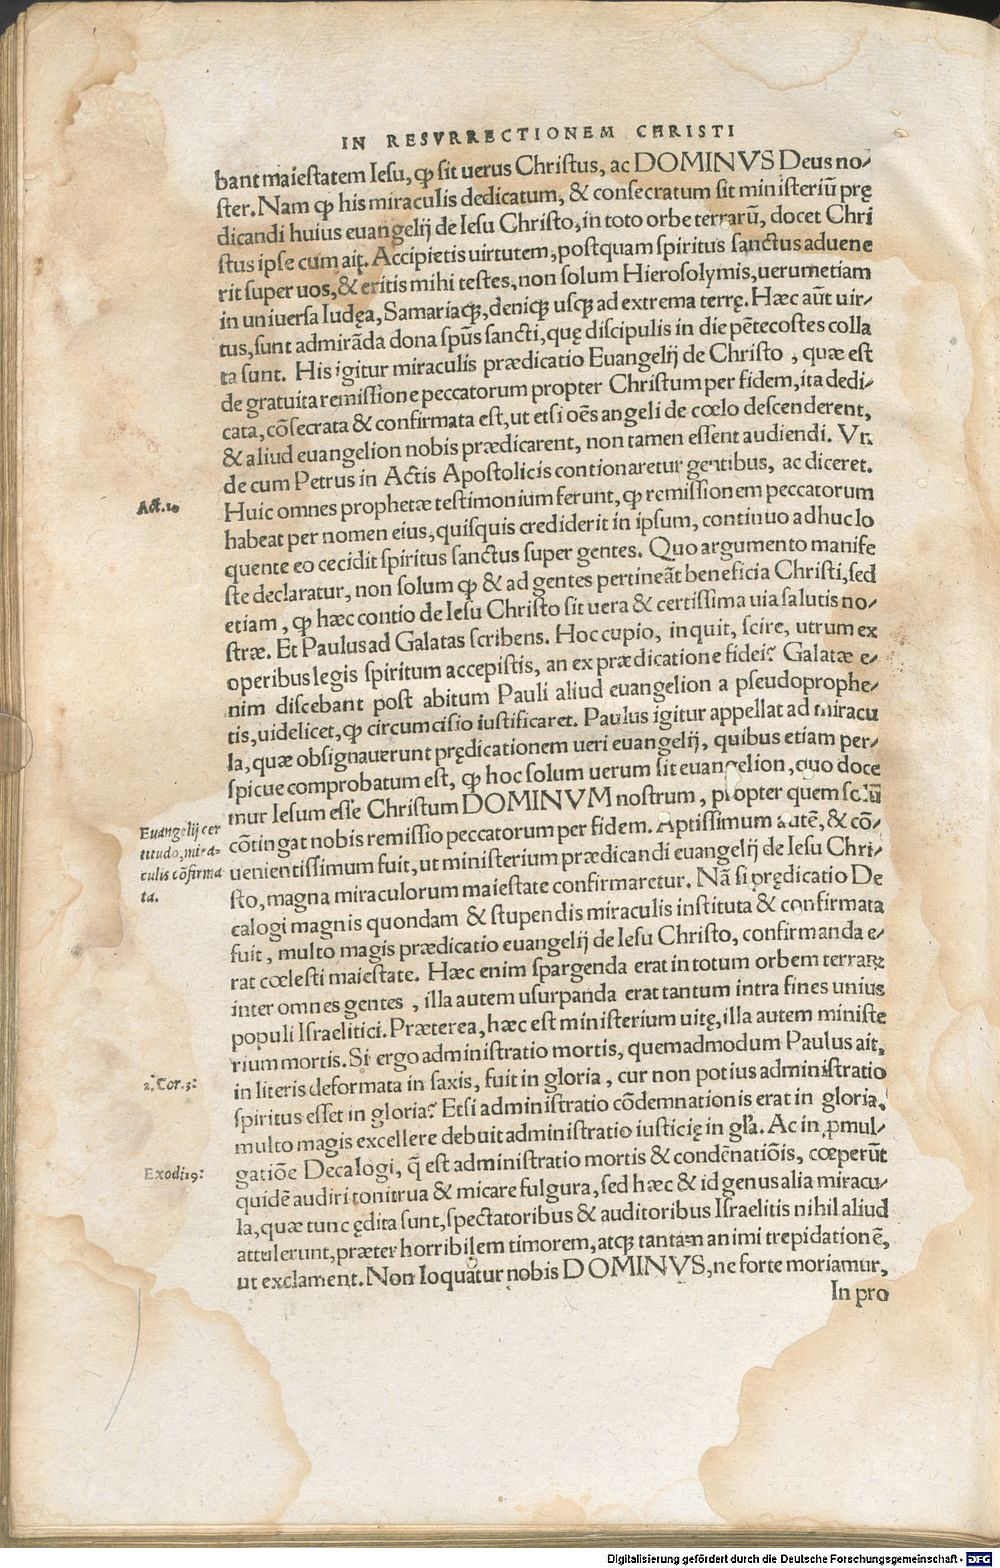 IN RESVRRECTIONEM CHRISTI
bant maiestatem Iesu, ꝙ sit uerus Christus, ac DOMINVS Deus no⸗
ster. Nam ꝙ his miraculis dedicatum, & consecratum sit ministeriũ prę
dicandi huius euangelij de Iesu Christo, in toto orbe terrarũ, docet Chri
stus ipse cum ait. Accipietis uirtutem, postquam spiritus sanctus aduene
rit super uos, & eritis mihi testes, non solum Hierosolymis, uerumetiam
in uniuersa Iudęa, Samariaqꝫ, deniqꝫ usqꝫ ad extrema terrę. Hæc aũt uir⸗
tus, sunt admirãda dona spũs sancti, quę discipulis in die pẽtecostes colla
ta sunt. His igitur miraculis prædicatio Euangelij de Christo, quæ est
de gratuita remissione peccatorum propter Christum per fidem, ita dedi⸗
cata, cõsecrata & confirmata est, ut etsi oẽs angeli de cœlo descenderent,
& aliud euangelion nobis prædicarent, non tamen essent audiendi. Vn
de cum Petrus in Actis Apostolicis contionaretur gentibus, ac diceret.
Act. 10
Huic omnes prophetæ testimonium ferunt, ꝙ remissionem peccatorum
habeat per nomen eius, quisquis crediderit in ipsum, continuo adhuc lo
quente eo cecidit spiritus sanctus super gentes. Quo argumento manife
ste declaratur, non solum ꝙ & ad gentes pertineãt beneficia Christi, sed
etiam, ꝙ hæc contio de Iesu Christo sit uera & certissima uia salutis no⸗
stræ. Et Paulus ad Galatas scribens. Hoc cupio, inquit, scire, utrum ex
operibus legis spiritum accepistis, an ex prædicatione fidei? Galatæ e⸗
nim discebant post abitum Pauli aliud euangelion a pseudoprophe⸗
tis, uidelicet, ꝙ circumcisio iustificaret. Paulus igitur appellat ad miracu
la, quæ obsignauerunt prędicationem ueri euangelij, quibus etiam per⸗
spicue comprobatum est, ꝙ hoc solum uerum sit euangelion, quo doce
mur Iesum esse Christum DOMINVM nostrum, propter quem solũ
Euangelij cer
titudo, mira⸗
culis cõfirma
ta.
cõtingat nobis remissio peccatorum per fidem. Aptissimum autẽ, & cõ⸗
uenientissimum fuit, ut ministerium prædicandi euangelij de Iesu Chri⸗
sto, magna miraculorum maiestate confirmaretur. Nã si prędicatio De
calogi magnis quondam & stupendis miraculis instituta & confirmata
fuit, multo magis prædicatio euangelij de Iesu Christo, confirmanda e⸗
rat cœlesti maiestate. Hæc enim spargenda erat in totum orbem terraꝝ
inter omnes gentes, illa autem usurpanda erat tantum intra fines unius
populi Israelitici. Præterea, hæc est ministerium uitę, illa autem ministe
rium mortis. Si ergo administratio mortis, quemadmodum Paulus ait,
2. Cor. 3:
in literis deformata in saxis, fuit in gloria, cur non potius administratio
spiritus esset in gloria? Etsi administratio cõdemnationis erat in gloria,
multo magis excellere debuit administratio iusticię in gl̃a. Ac in ꝓmul⸗
Exodi 19:
gatiõe Decalogi, q̃ est administratio mortis & condẽnatiõis, cœperũt
quidẽ audiri tonitrua & micare fulgura, sed hæc & id genus alia miracu⸗
la, quæ tunc ędita sunt, spectatoribus & auditoribus Israelitis nihil aliud
attulerunt, præter horribilem timorem, atqꝫ tantam animi trepidationẽ,
ut exclament. Non loquatur nobis DOMINVS, ne forte moriamur,
In pro
Digitalisierung gefördert durch die Deutsche Forschungsgemeinschaft - DFG